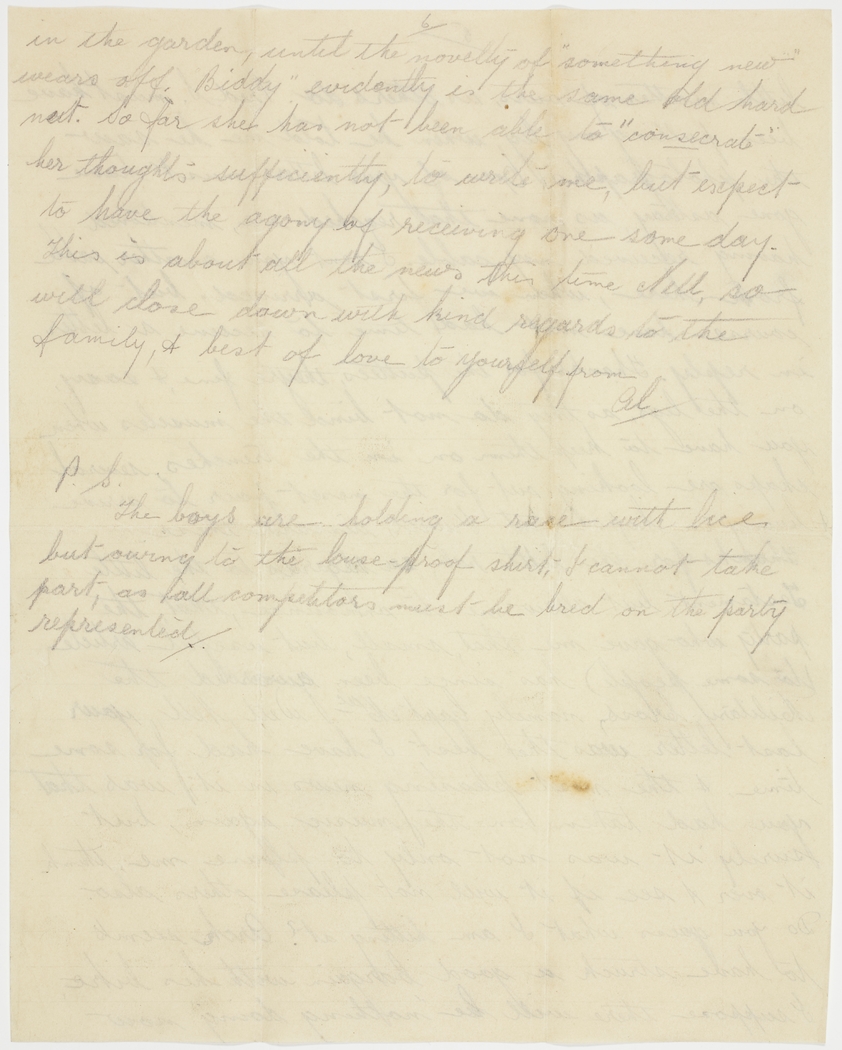 6
in the garden, until the novelty of "something new"
wears off. Biddy" evidently is the same old hard
nut. So far she has not been able to "consecrate"
her thoughts sufficiently, to write me, but expect
to have the agony of receiving one some day.
This is about all the news this time Nell, so
will close down with kind regards to the
family, & best of love to yourself from
Al.
P. S.
The boys are holding a race with lice
but owing to the louse-proof shirt, I cannot take
part, as all competitors must be bred on the party
represented.